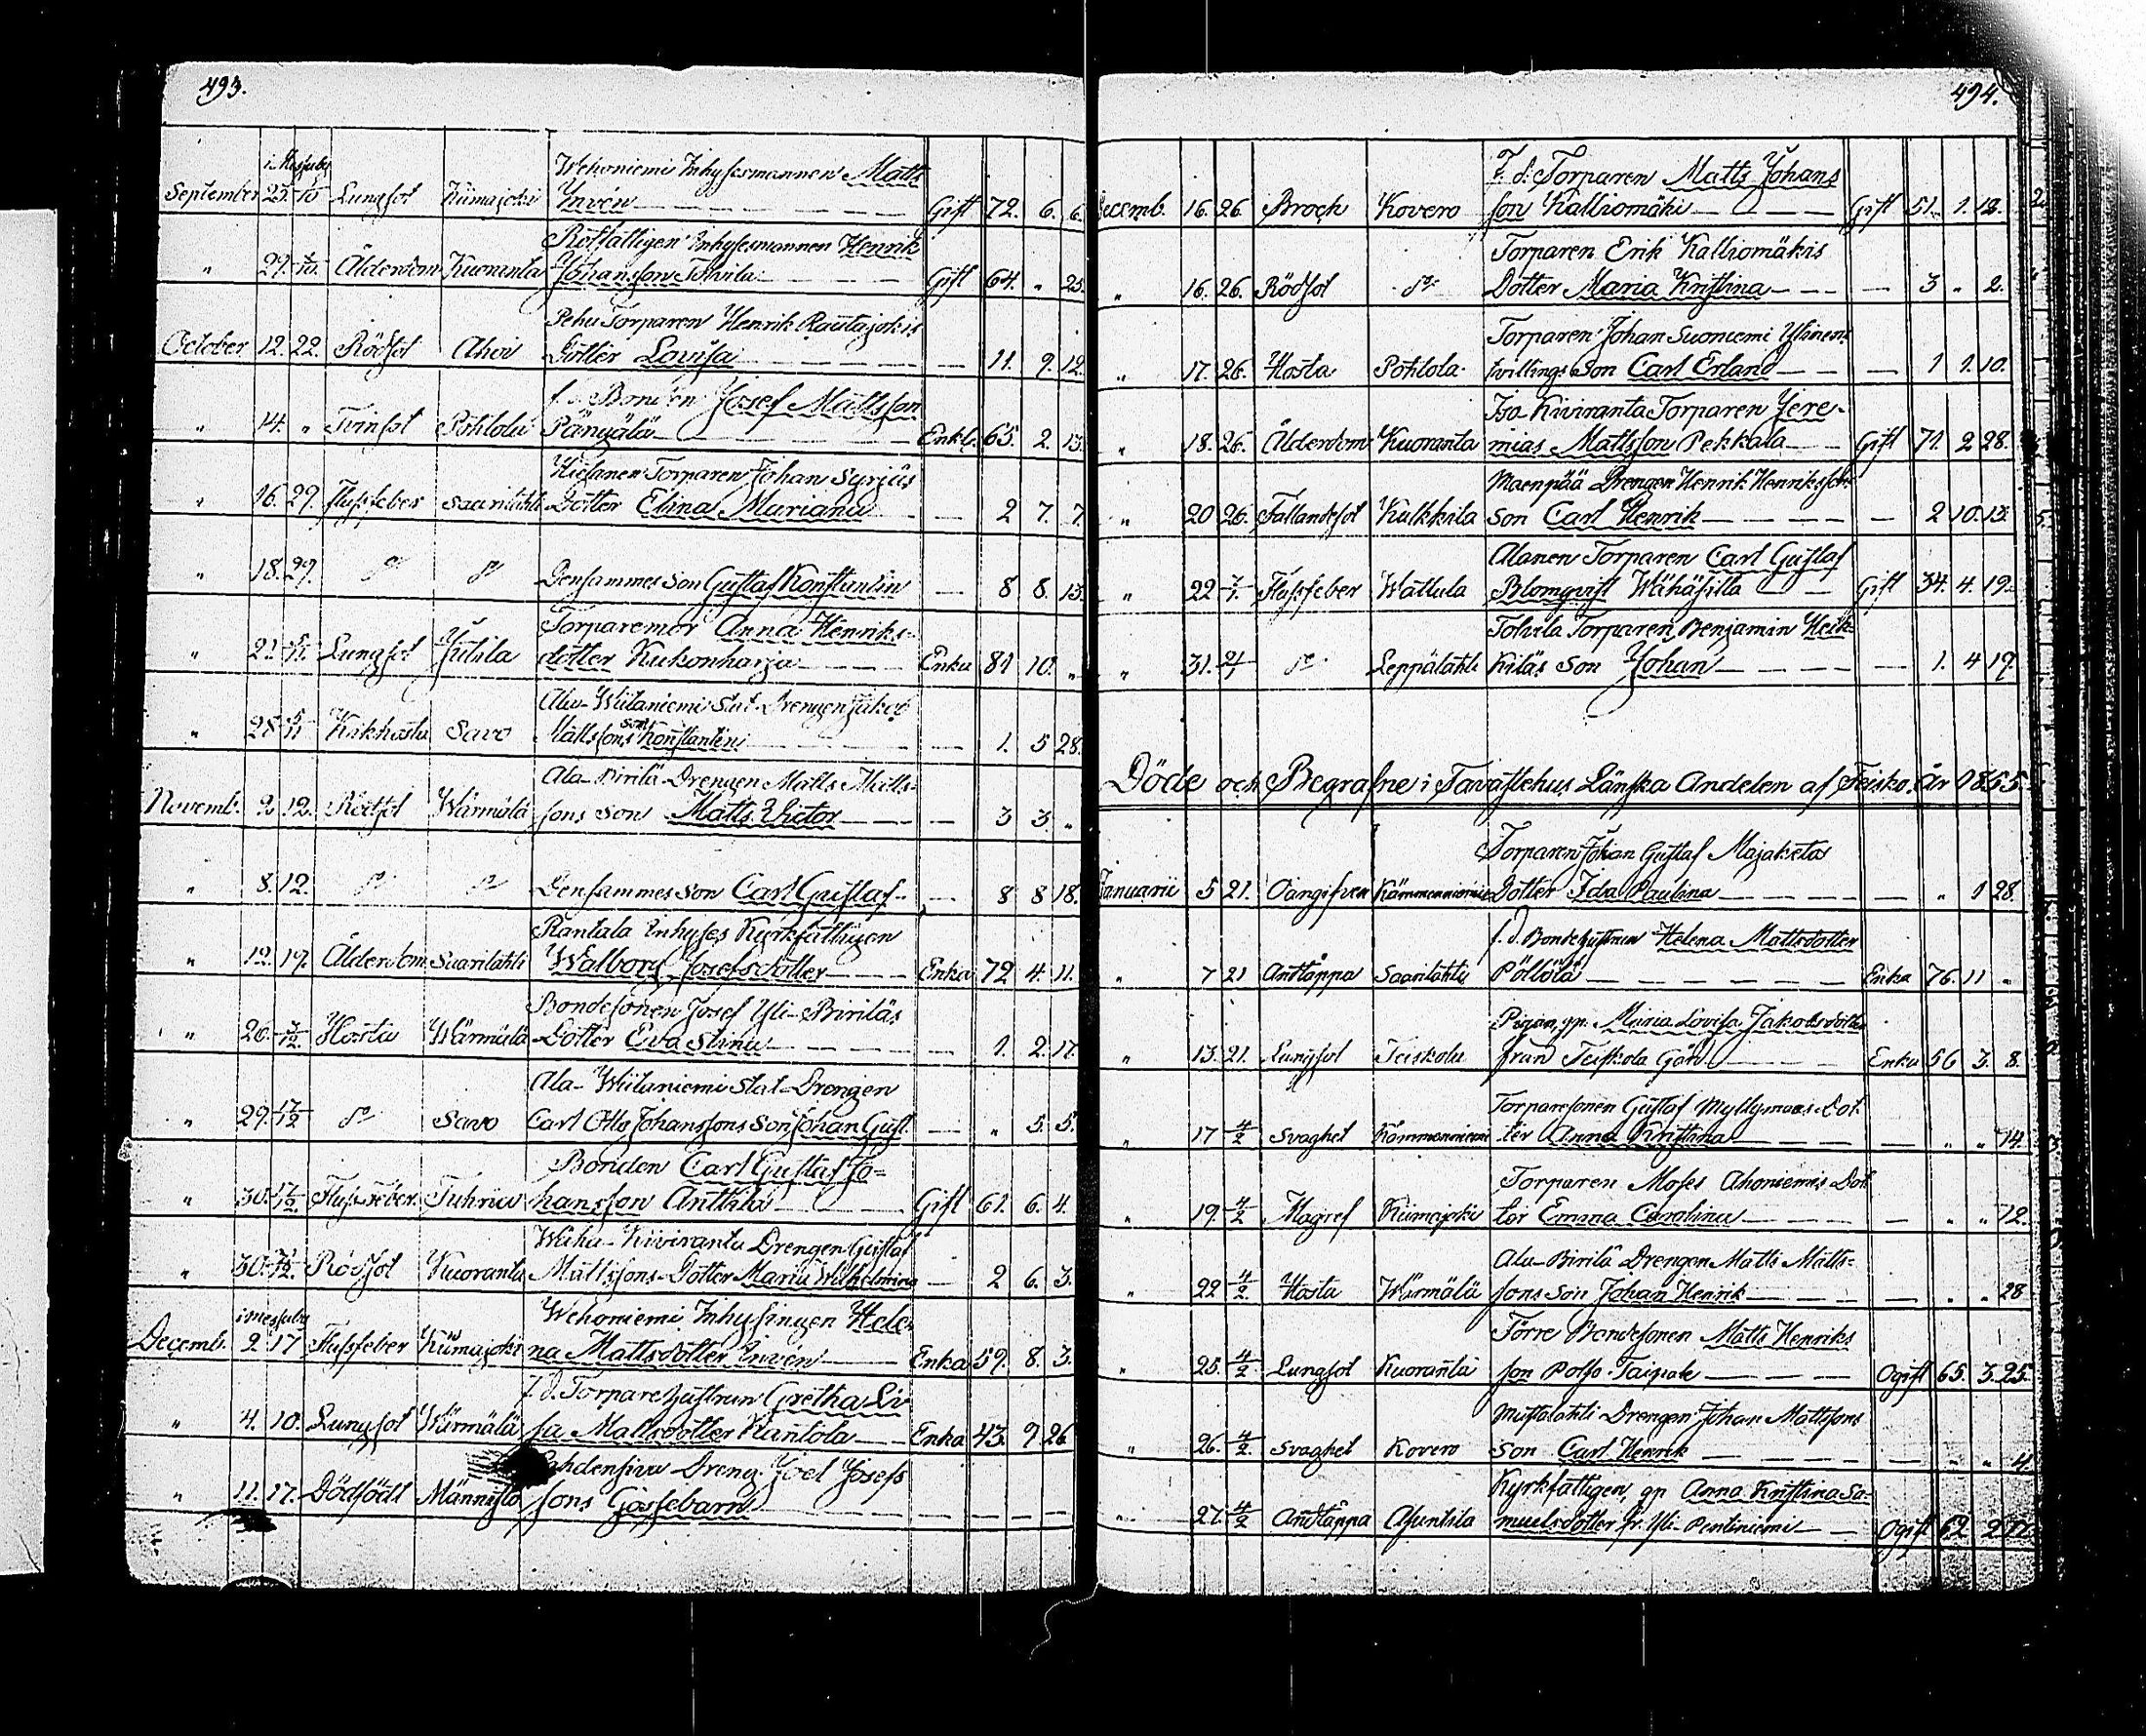 493.
i Messuby
Wehoniemi Inhysesmannen Matts
September 25. 5/10 Lungsot Kiimajoki Invén Gift 72. 6. 6.
Rotfattigen Inhysesmannen Henrik
" 29. 8/10. Ålderdom Kuoranta Johansson Tolvila Gift 64. " 25.
Pehu Torparen Henrik Rautajokis
October 12. 22. Rödsot Ahoi Dotter Lovisa — 11. 9. 12.
f. d. Bonden Josef Mattsson
" 14. " Tvinsot Pohtola Pänyälä Enkl. 65. 2. 13.
Torparen Johan Syrjäs
" 16. 29. Flussfeber Saarilahti Dotter Elina Mariana — 2 7. 7.
" 18. 29. do do Densammes Son Gustaf Konstantin — 8 8. 13.
Torparemor Anna Henriks-
" 21. Lungsot Jutila dotter Kukonharja Enka 81 10. "
Ala-Wiitaniemi Stat-Drengen Jakob
" 28. 5/11 Kikhosta Savo Mattssons son Konstantin — 1. 5 28.
Ala-Pirilä Drengen Matts Matts-
Novemb. 2. 12. Rödsot Wärmälä sons Son Matts Victor — 3 3. "
" 8. 12. do do Densammes Son Carl Gustaf — 8 8 18.
Rantala Inhyses Kyrkfattigen
" 12. 19. Ålderdom Saarilahti Walborg Josefsdotter Enka 72 4. 11.
Bondesonen Josef Yli-Piriläs
" 26. 3/12. Hosta Wärmälä Dotter Eva Stina — 1. 2. 17.
Ala-Wiitaniemi Stat-Drengen
" 29. 17/12 do Savo Carl Otto Johanssons Son Johan Gust. — " 5. 5.
Bonden Carl Gustaf Jo-
" 30. 17/12. Flussfeber Tuhria hansson Anttila Gift 61. 6. 4.
Wähä-Kiviranta Drengen Gustaf
" 30. Rödsot Kuoranta Mattssons Dotter Maria Wilhelmina — 2 6. 3.
i Messuby
Wehoniemi Inhysingen Hele-
Decemb. 2. 17 Flussfeber Kiimajoki na Mattsdotter Invén Enka 59. 8. 3.
f. d. Torparehustrun Gretha Li-
" 4. 10. Lungsot Wärmälä sa Mattsdotter Rantola Enka 43. 9 26.
Lahdensivu Dreng. Joel Josefs
" 11. 17. Dödfödt Männistö sons Gossebarn — — — —
494.
F. d. Torparen Matts Johans
Decemb. 16. 26. Broch Kovero son Kalliomäki Gift 51. 1. 12.
Torparen Erik Kalliomäkis
" 16. 26. Rödsot do Dotter Maria Kristina — 3 " 2.
Torparen Johan Suoniemi Ylinens
" 17. 26. Hosta Pohtola tvillings Son Carl Erland — 1 1. 10.
Iso-Kiviranta Torparen Jere-
" 18. 26. Ålderdom Kuoranta mias Mattsson Pekkala Gift 71. 2 28.
Maenpää Drengen Henrik Henrikssons
" 20 26. Fallandesot Kulkkila Son Carl Henrik — 2 10. 13.
Alanen Torparen Carl Gustaf
" 22 Flussfeber Wattula Blomqvist Wähäsilta Gift 34. 4. 19.
Tolvila Torparen Benjamin Heik-
" 31. 21/1 do Leppälahti kiläs Son Johan — 1. 4 19.
Döde och Begrafne i Tavastehus Länska Andelen af Teisko År 1855.
Torparen Johan Gustaf Majaketas
Januarii 5 21. Oangifven Kämmenniemi Dotter Ida Paulina — " 1 28.
f. d. Bondehustrun Helena Mattsdotter
" 7 21 Andtäppa Saarilahti Pöllölä Enka 76. 11 "
Pigan, gp. Maria Lovisa Jakobsdotter
" 13. 21. Lungsot Teiskola från Teiskola Gård Enka 56 3. 8.
Torparesonen Gustaf Myllymaas Dot-
" 17 4/2 Svaghet Kämmenniemi ter Anna Kristina — " " 14.
Torparen Moses Ahoniemis Dot-
" 19. 4/2 Magref Kiimajoki ter Emma Carolina — " " 12.
Ala-Pirilä Drengen Matts Matts-
" 22 4/2. Hosta Wärmälä sons Son Johan Henrik — " " 28
Torre Bondesonen Matts Henriks
" 25. 4/2 Lungsot Kuoranta son Polso-Taipale Ogift 65. 3. 25.
Mustalahti Drengen Johan Mattssons
" 26. 4/2. Svaghet Kovero Son Carl Henrik — " " 4.
Kyrkfattigen, gp Anna Kristina Sa-
" 27. 4/2 Andtäppa Asuntila muelsdotter fr. Yli-Pentiniemi Ogift 62 2